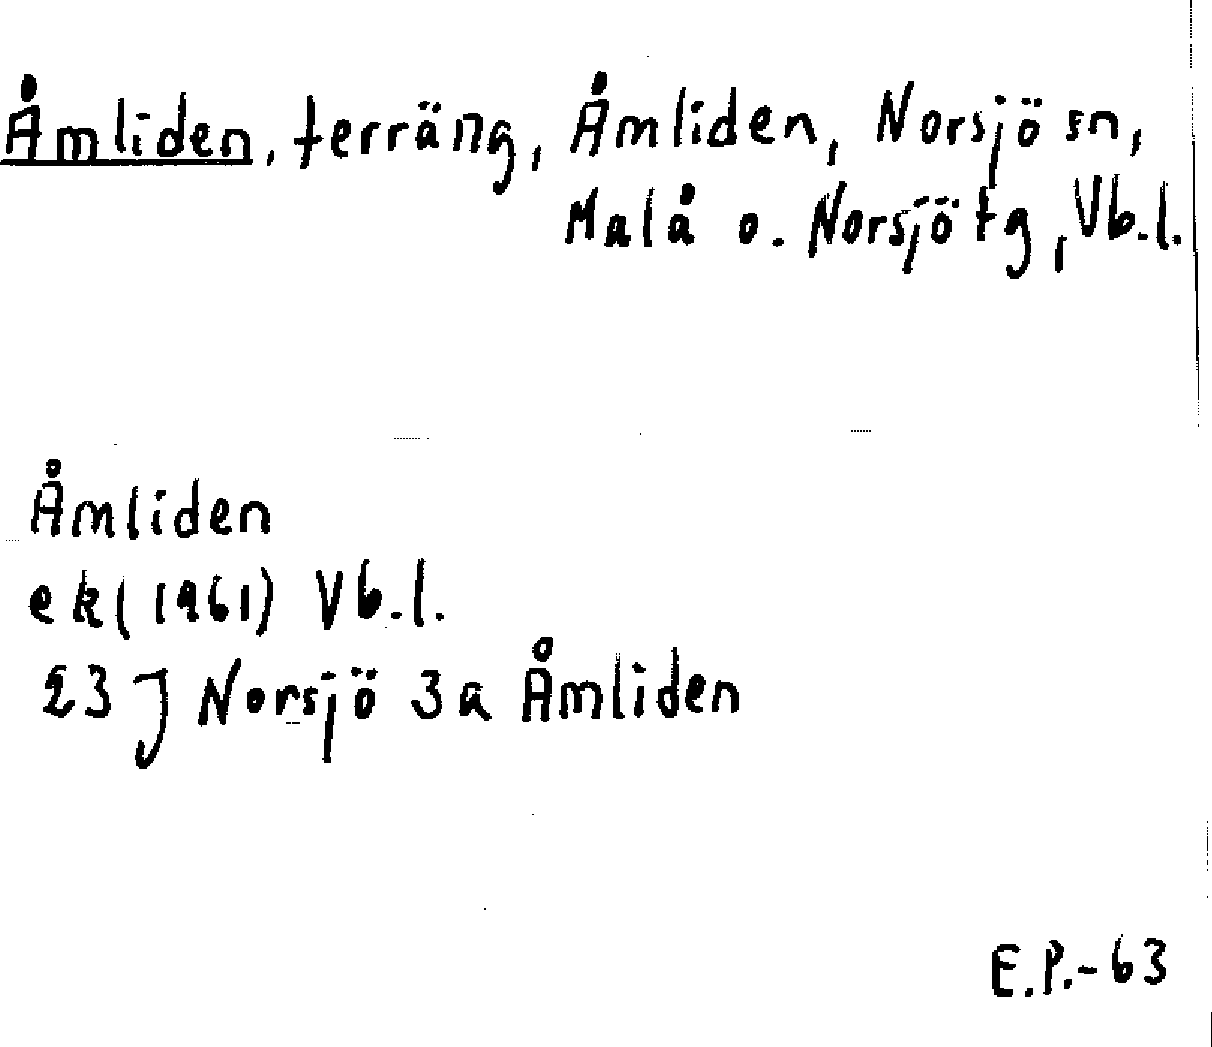 Åmliden, terräng, Åmliden, Norsjö sn,
Malå o. Norsjö tg, Vb.l.
Åmliden
ek (1961) Vb.l.
23 J Norsjö 3a Åmliden
E.P.-63